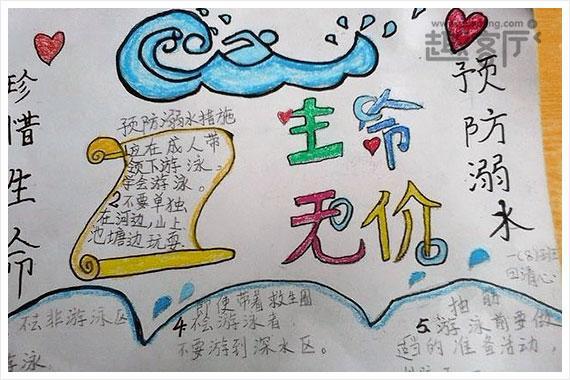 珍惜生命
预防溺水
生命
无价
预防溺水措施
1应在成人带
领下游泳、
学会游泳。
2不要单独
在河边,山上
池塘边玩耍
一(8)班
去非游泳区
游泳
即使带着救生圈
4.
游泳者
不要游到深水区。
抽筋
5.游泳前要做
适当的准备活动,
趣客厅